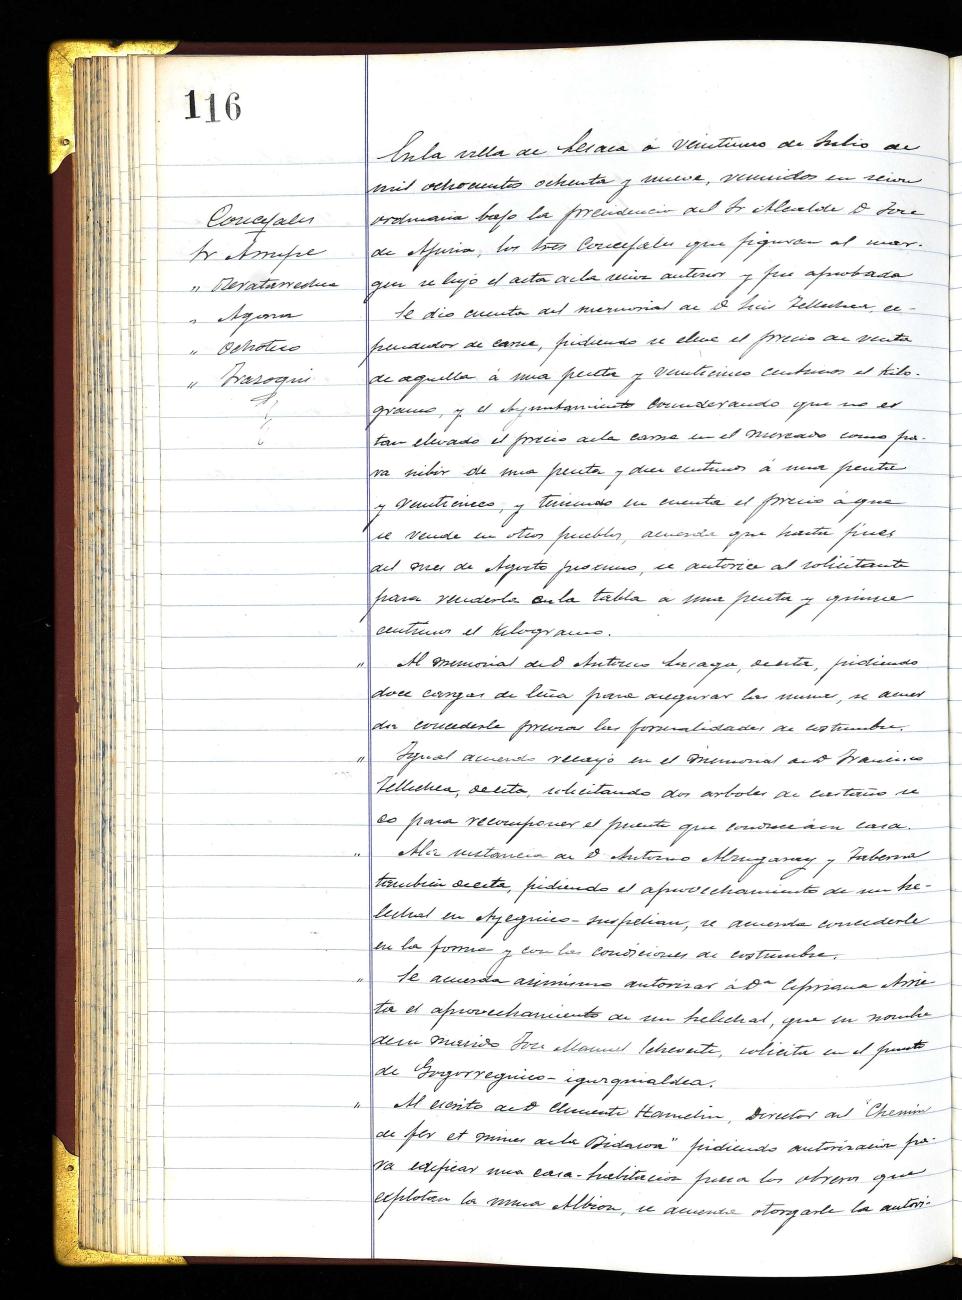 116
Concejales
Sr Arrupe
" Iteratarrechea
" Agara
" Ochoteco
" Irazoqui
En la villa de Lesaca á veintiuno de Julio de
mil ochocientos ochenta y nueve, reunidos en sesion
ordinaria bajo la presidencia del Sr Alcalde D Jose
de , los tres Concejales que figuran al mar-
gen se leyó el acta de la sesion anterior y fue aprobada
Se dio cuenta del memorial de D Luis Tellechea, es-
pendedor de carne, pidiendo se eleve el precio de venta
de aquella á una peseta y veinticinco centimos el kilo-
gramo, y el Ayuntamiento considerando que no es
tan elevado el precio de la carne en el mercado como pa-
ra subir de una peseta y diez centimos á una peseta
y veinticinco, y teniendo en cuenta el precio á que
se vende en otros pueblos, acuerda que hasta fines
del mes de Agosto proximo, se autorice al solicitante
para venderla en la tabla a una peseta y quince
centimos el kilogramo.
" Al memorial de D Antonio , de esta, pidiendo
doce cargas de leña para asegurar las , se acuer
da concederle previas las formalidades de costumbre.
" Igual acuerdo recayó en el memorial de D Francisco
Tellechea, de esta, solicitando dos arboles de castaño se
co para recomponer el puente que conduce á su casa.
" A la instancia de D Antonio Alzugaray y Taberna
tambien de esta, pidiendo el aprovechamiento de un he-
lechal en , se acuerda concederle
en la forma y con las condiciones de costumbre.
" Se acuerda asimismo autorizar á Da Cipriana Arrie
ta el aprovechamiento de un helechal, que en nombre
de su marido Jose Manuel Echeveste, solicita en el punto
de Gogorreguico-igurquialdea.
" Al escrito de D Clemente Hamelin, Director del "Chemin
de fer et mines de la Bidasoa" pidiendo autorizacion pa-
ra edificar una casa-habitacion para los obreros que
esplotan la mina Albion, se acuerda otorgarle la autori-